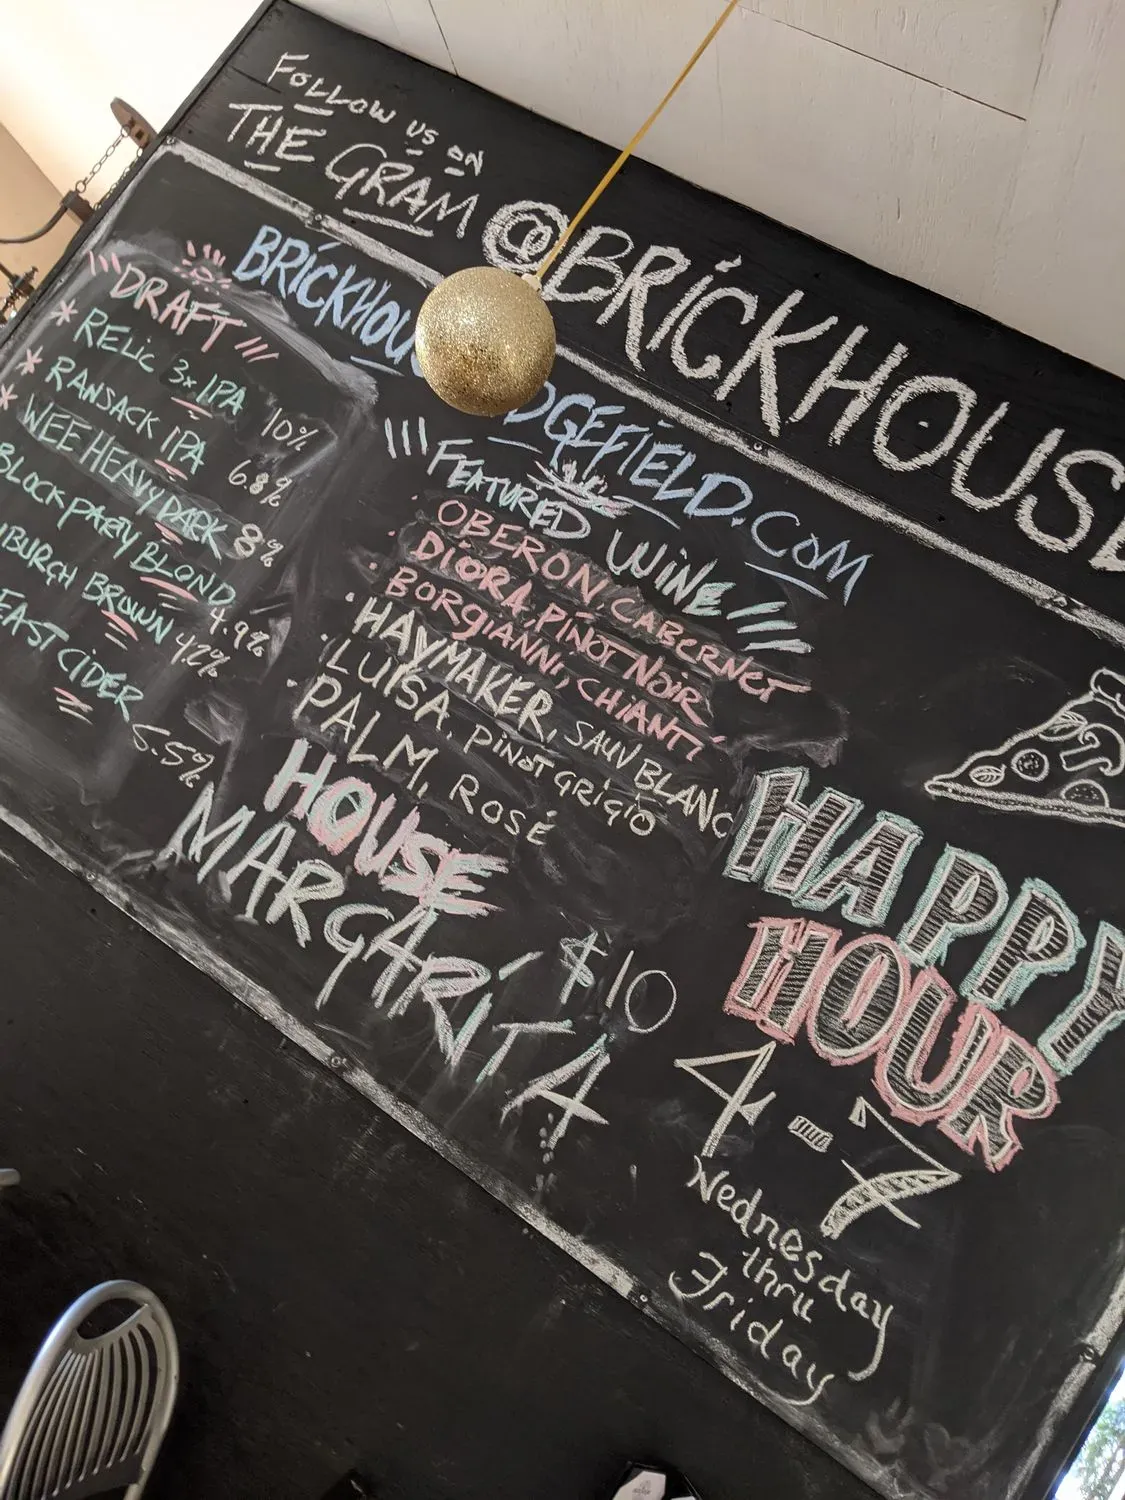 FOLLOW US ON
THE GRAM @BRICKHOUSE
BRICKHOU DGEFIELD.COM
DRAFT
* RELIC 3x IPA 10%
* RANSACK IPA 6.8%
* WEE HEAVY DARK 8%
BLOCK PARTY BLOND 4.9%
BURGH BROWN 4.2%
EAST CIDER 5.5%
FEATURED WINE
· OBERON, CABERNET
· DIORA, PINOT NOIR
· BORGIANNI, CHIANTI
· HAYMAKER, SAUV BLANC
· LUISA, PINOT GRIGIO
· PALM, ROSÉ
HOUSE
MARGARITA $10
HAPPY
HOUR
4-7
Wednesday
thru
Friday